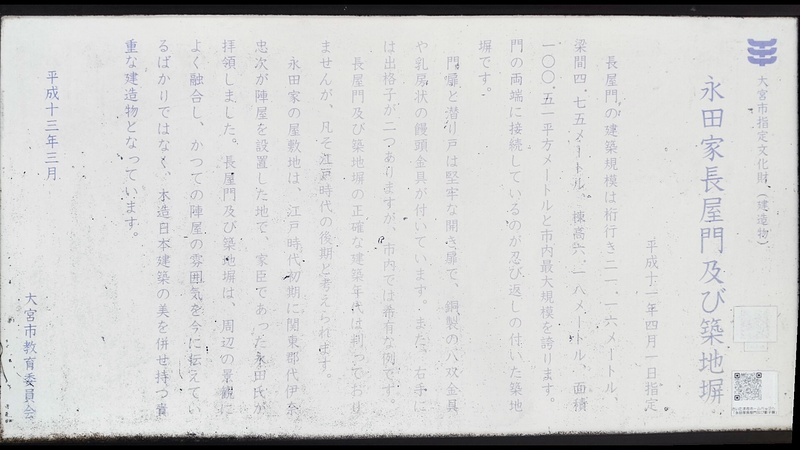 大宮市指定文化財（建造物）
永田家長屋門及び築地塀
平成十二年四月一日指定
長屋門の建築規模は桁行き二一．一六メートル、
梁間四．七五メートル、棟高六．一八メートル、面積
一〇〇．五一平方メートルと市内最大規模を誇ります。
門の両端に接続しているのが忍び返しの付いた築地
塀です。
門扉と潜り戸は堅牢な開き扉で、銅製の八双金具
や乳房状の饅頭金具が付いています。また、右手に
は出格子が二つありますが、市内では希有な例です。
長屋門及び築地塀の正確な建築年代は判っており
ませんが、凡そ江戸時代の後期と考えられます。
永田家の屋敷地は、江戸時代初期に関東郡代伊奈
忠次が陣屋を設置した地で、家臣であった永田氏が
拝領しました。長屋門及び築地塀は、周辺の景観に
よく融合し、かつての陣屋の雰囲気を今に伝えてい
るばかりではなく、木造日本建築の美を併せ持つ貴
重な建造物となっています。
平成十三年三月
大宮市教育委員会